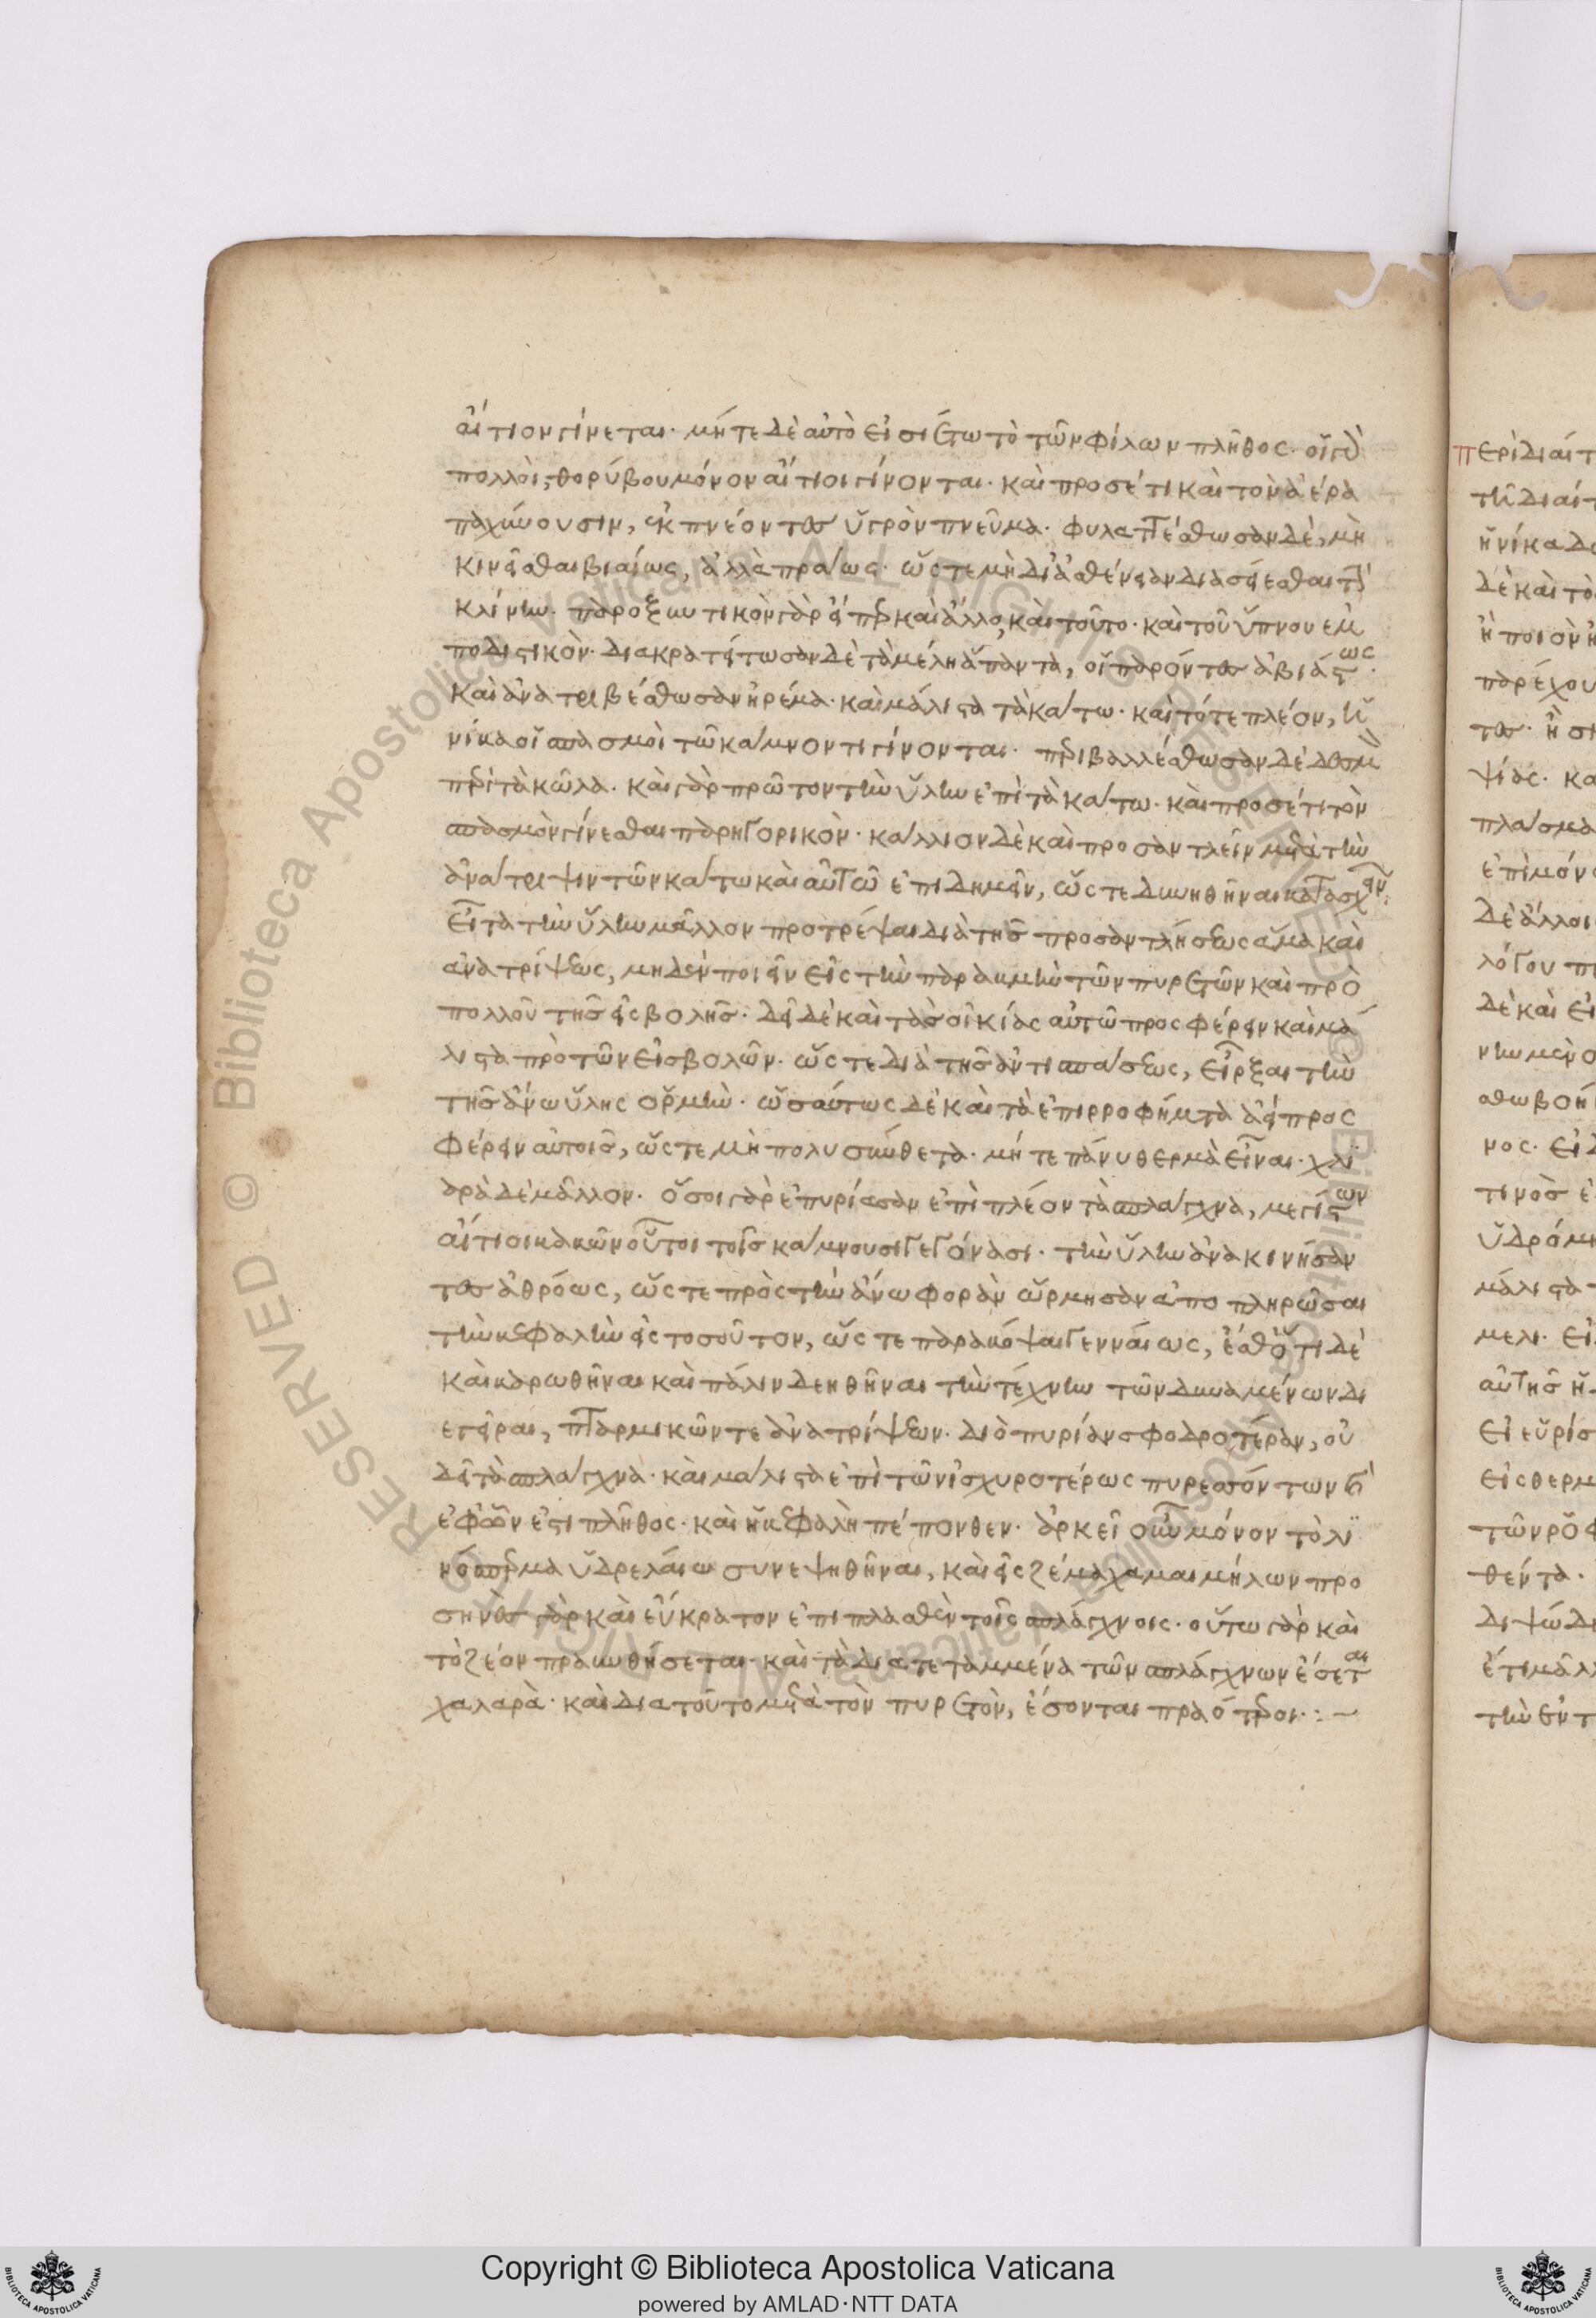 αἴτιον γίνεται· μήτε δὲ αὐτὸ εἰσίτω τὸ τῶν φίλων πλῆθος· οἱ γὰρ
πολλοὶ, θορύβου μόνον αἴτιοι γίνονται· καὶ προσέτι καὶ τὸν ἀέρα
παχύνουσιν, ἐκπνέοντες ὑγρὸν πνεῦμα· φυλαττέσθωσαν δὲ, μὴ
κινεῖσθαι βιαίως, ἀλλὰ πράως· ὥστε μὴ δι' ἀσθένειαν διασείεσθαι τὴν
κλίνην· παροξυντικὸν γὰρ εἴπερ καὶ ἄλλο, καὶ τοῦτο· καὶ τοῦ ὕπνου ἐμ
ποδιστικόν· διακρατείτωσαν δὲ τὰ μέλη ἅπαντα, οἱ παρόντες ἀβιάστως·
καὶ ἀνατριβέσθωσαν ἠρέμα· καὶ μάλιστα τὰ κάτω· καὶ τότε πλέον, ἡ
νίκα οἱ σπασμοὶ τῶ κάμνοντι γίνονται· περιβαλλέσθωσαν δὲ δεσμοὶ
περὶ τὰ κῶλα· καὶ γὰρ πρῶτον τὴν ὕλην ἐπὶ τὰ κάτω· καὶ προσέτι τὸν
σπασμὸν γίνεσθαι παρηγορικὸν· κάλλιον δὲ καὶ προσαντλεῖν μετὰ τὴν
ἀνάτριψιν τῶν κάτω καὶ αὐτῶ ἐπιδημεῖν, ὥστε δυνηθῆναι κατασχεῖν·
εἶτα τὴν ὕλην μᾶλλον προτρέψαι διὰ τῆς προσαντλήσεως ἅμα καὶ
ἀνατρίψεως, μηδὲν ποιεῖν εἰς τὴν παρακμὴν τῶν πυρετῶν καὶ πρὸ
πολλοῦ τῆς εἰσβολῆς· δεῖ δὲ καὶ τὰς σικύας αὐτῶ προσφέρειν καὶ μά
λιστα πρὸ τῶν εἰσβολῶν· ὥστε διὰ τῆς ἀντισπάσεως, εἶρξαι τὴν
τῆς ἄνω ὕλης ὁρμὴν· ὡσαύτως δὲ καὶ τὰ ἐπιρροφήματα δεῖ προς
φέρειν αὐτοῖς, ὥστε μὴ πολυσύνθετα· μήτε πάνυ θερμὰ εἶναι· χλι
αρὰ δὲ μᾶλλον· ὅσοι γὰρ ἐπυρίασαν ἐπὶ πλέον τὰ σπλάγχνα, μεγίστων
αἴτιοι κακῶν οὗτοι τοῖς κάμνουσι γεγόνασι· τὴν ὕλην ἀνακινήσαν
τες ἀθρόως, ὥστε πρὸς τὴν ἄνω φορὰν ὥρμησαν ἀποπληρῶσαι
τὴν κεφαλὴν εἰς τοσοῦτον, ὥστε παρακόψαι γενναίως, ἔσθ' ὅτι δὲ
καὶ καρωθῆναι καὶ πάλιν δεηθῆναι τὴν τέχνην τῶν δυναμένων δι
εγεῖραι, πταρμικῶν τε ἀνατρίψεων· διὸ πυρίαν σφοδροτέραν, οὐ
δεῖ τὰ σπλάγχνα· καὶ μάλιστα ἐπὶ τῶν ἰσχυροτέρως πυρεσσόντων καὶ
ἐφ' ὧν ἐστι πλῆθος· καὶ ἡ κεφαλὴ πέπονθεν· ἀρκεῖ οὖν μόνον τὸ λι
νόσπερμα ὑδρελαίω συνεψηθῆναι, καὶ εἰς ζέμα χαμαιμήλων προ
σηνὲς γὰρ καὶ εὔκρατον ἐπιπλασθὲν τοῖς σπλάγχνοις· οὕτω γὰρ καὶ
τὸ ζέον πραυνθήσεται· καὶ τὰ διατεταμμένα τῶν σπλάγχνων ἔσεται
χαλαρὰ· καὶ διατοῦτο μετὰ τὸν πυρετὸν, ἔσονται πραότεροι· :~